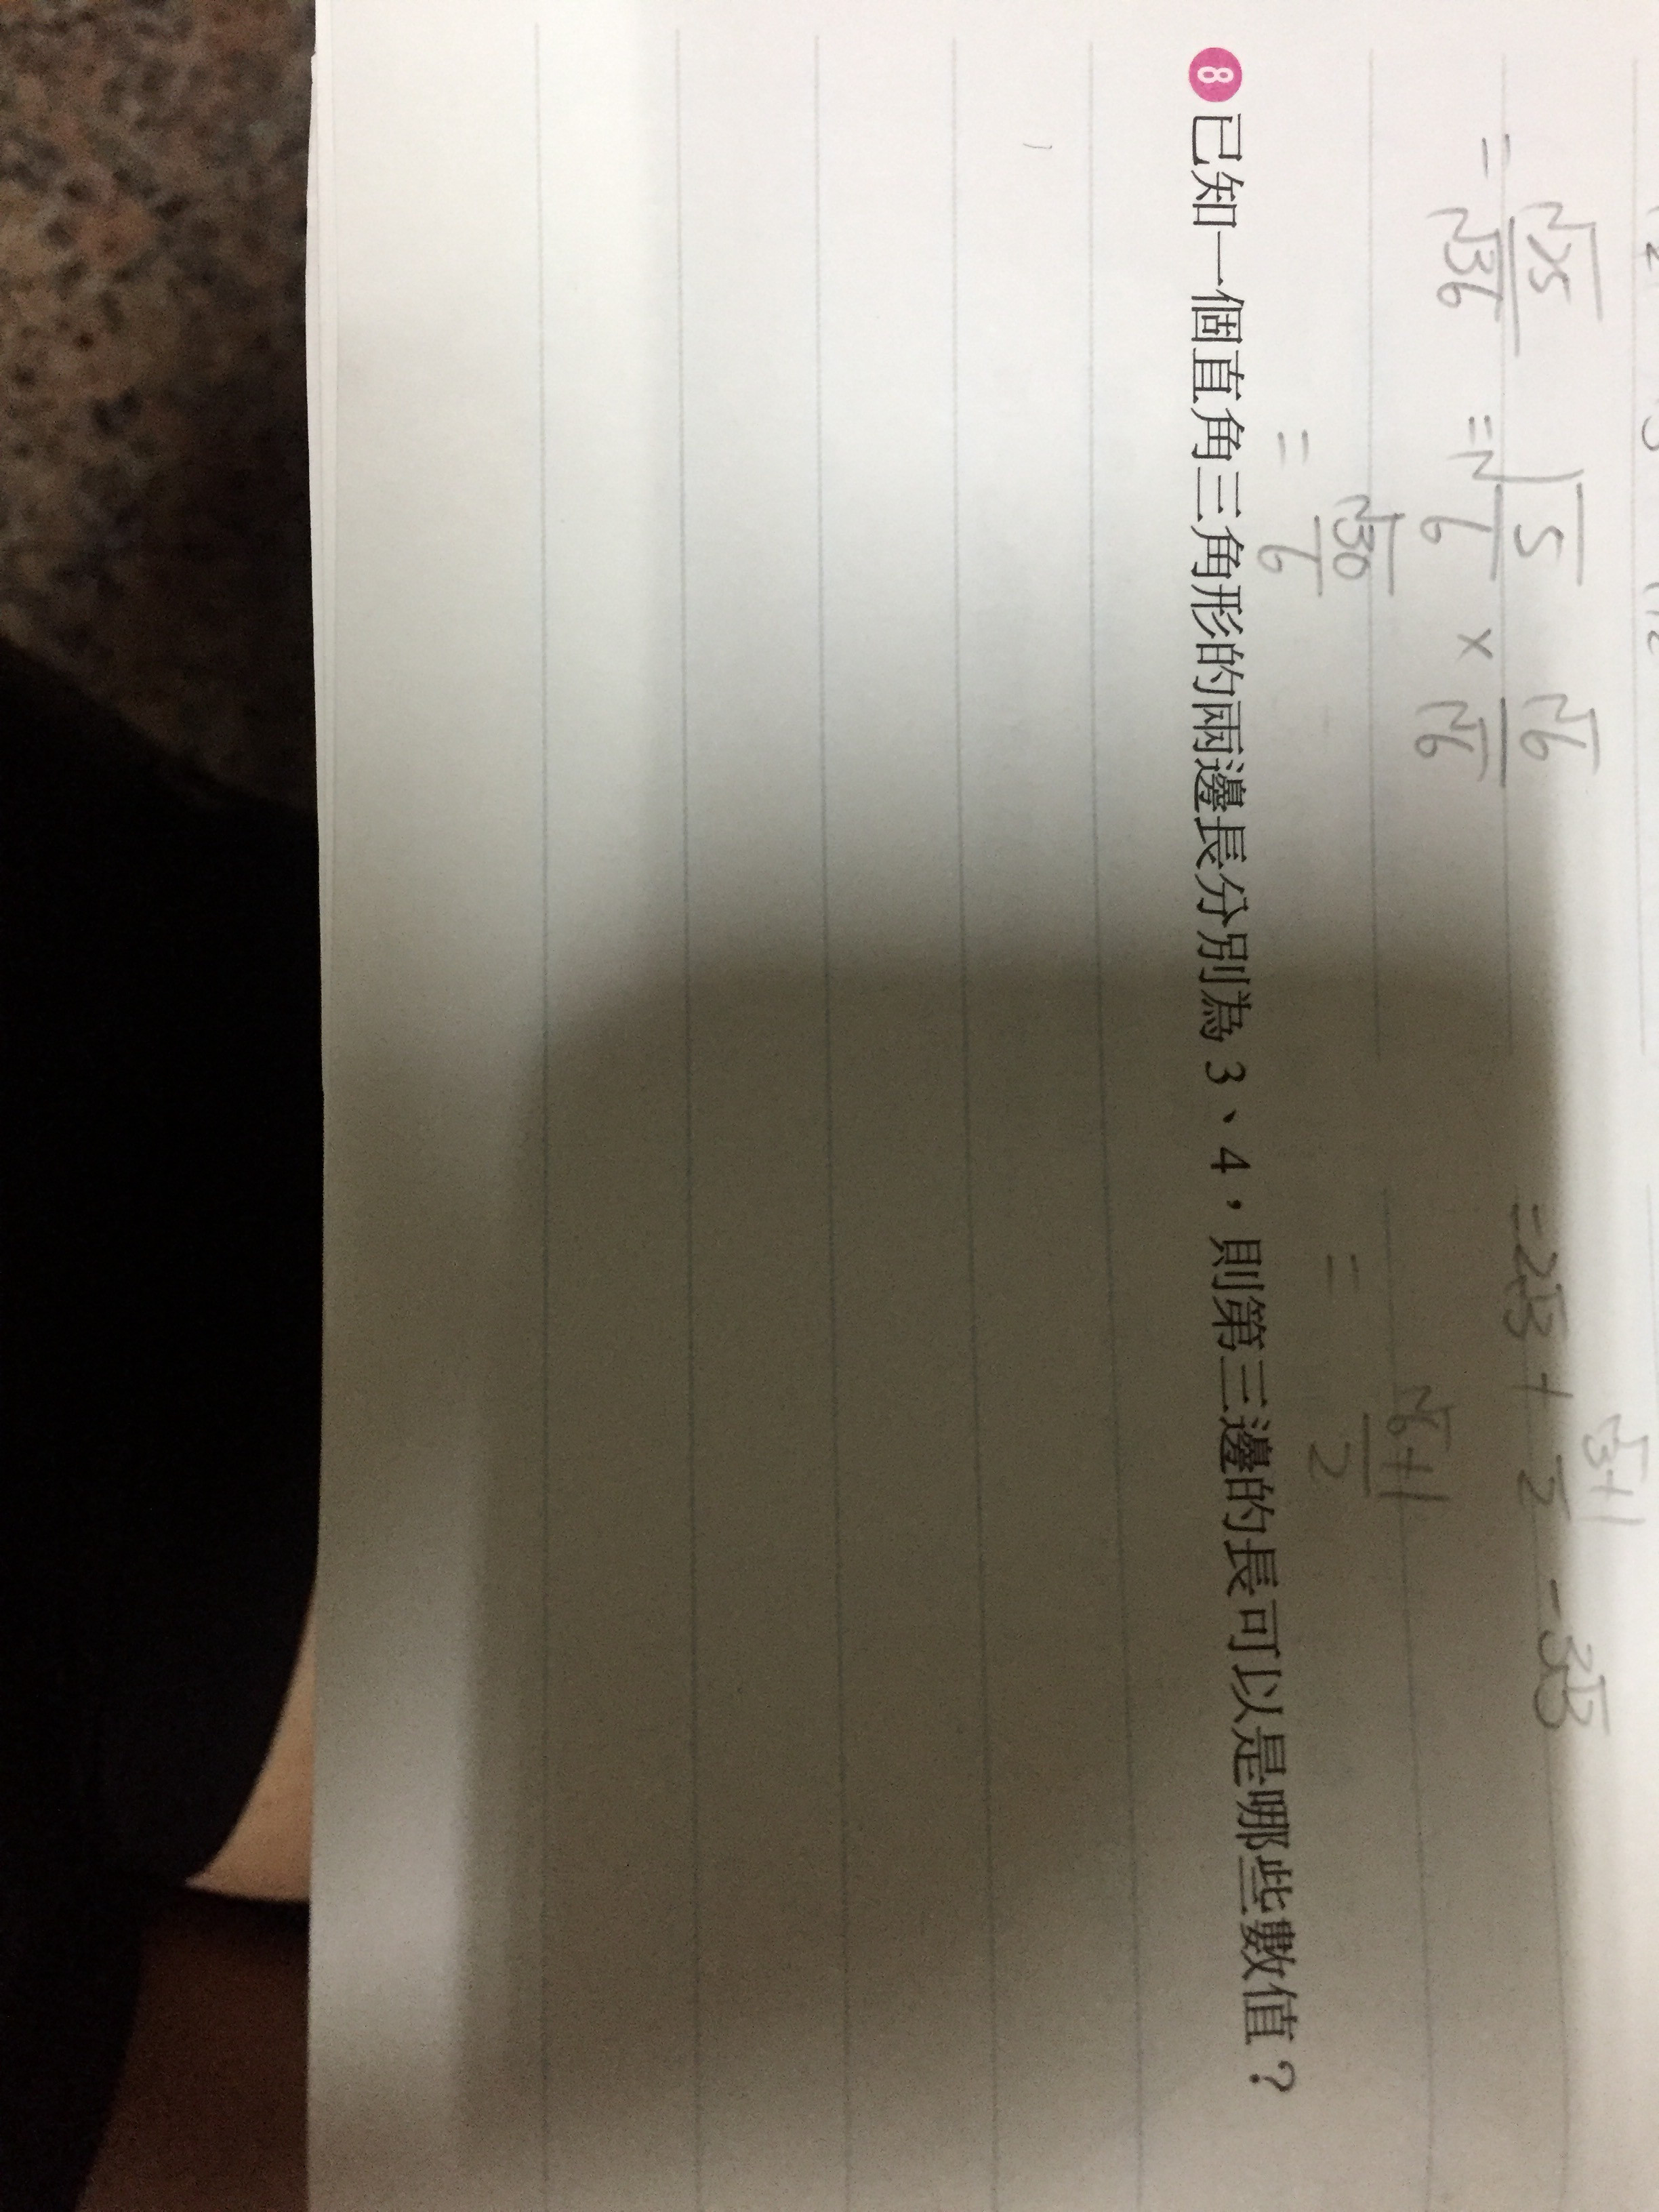 = √25/√36 = √5/√6 × √6/√6
= √30/6
√3+1
=2√3 + 2 - 3√3
= √6+1/2
8 已知一個直角三角形的兩邊長分別為 3、4，則第三邊的長可以是哪些數值？